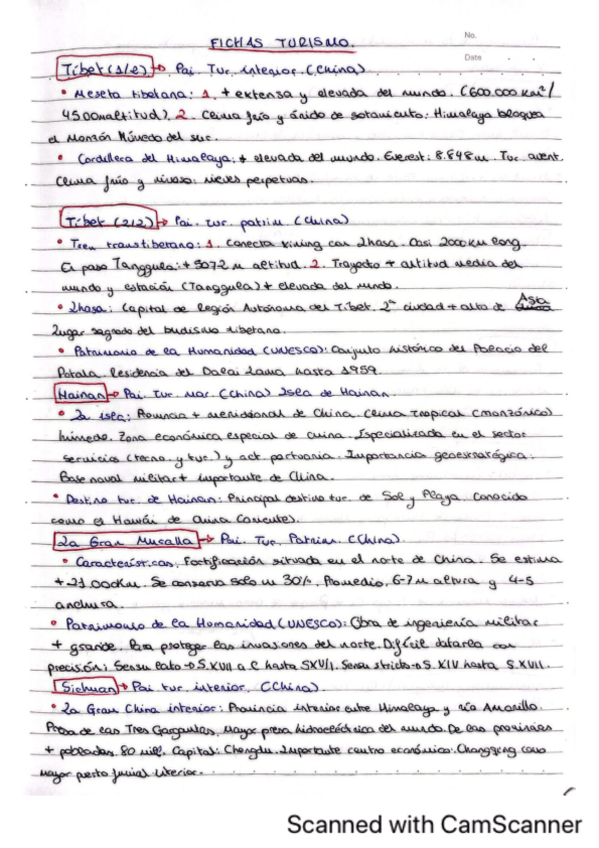 FICHAS TURISMO.
No.
Date
Tíbet (1/2) → Pai. Tur. interior. (China)
• Meseta tibetana: 1. + extensa y elevada del mundo. (600.000 km²/
4500m altitud). 2. Clima frío y árido de sotavento: Himalaya bloquea
el Monzón Húmedo del sur.
• Cordillera del Himalaya: + elevada del mundo. Everest: 8.848m. Tur. avent.
Clima frío y nivoso: nieves perpetuas.
Tíbet (2/2) → Pai. tur. patrim. (China)
• Tren transtibetano: 1. Conecta Xining con Lhasa. Casi 2000km long.
En paso Tanggula: + 5072 m altitud. 2. Trayecto + altitud media del
mundo y estación (Tanggula) + elevada del mundo.
• Lhasa: Capital de Región Autónoma del Tíbet. 2ª ciudad + alta de Asia
Lugar sagrado del budismo tibetano.
• Patrimonio de la Humanidad (UNESCO): Conjunto histórico del Palacio del
Potala. Residencia del Dalai Lama hasta 1959.
Hainan → Pai. Tur. Mar. (China) Isla de Hainan.
• La isla: Provincia + meridional de China. Clima Tropical (monzónico)
húmedo. Zona económica especial de China. Especializada en el sector
servicios (tecno. y tur.) y act. portuaria. Importancia geoestratégica.
Base naval militar + importante de China.
• Destino tur. de Hainan: Principal destino tur. de Sol y Playa. Conocido
como el Hawái de China (Oriente).
La Gran Muralla → Pai. Tur. Patrim. (China).
• Características. Fortificación situada en el norte de China. Se estima
+21.000km. Se conserva solo un 30%. Promedio, 6-7m altura y 4-5
anchura.
• Patrimonio de la Humanidad (UNESCO): Obra de ingeniería militar
+ grande. Para proteger las invasiones del norte. Difícil datarla con
precisión: Sensu lato → S. a C hasta S.XVII. Sensu stricto → S. XIV hasta S.XVII.
Sichuan → Pai tur. interior. (China).
• La Gran China interior: Provincia interior entre Himalaya y río Amarillo.
Presa de las Tres Gargantas, mayor presa hidroeléctrica del mundo. De las provincias
+ pobladas. 80 mill. Capital: Chengdu. Importante centro económico. como
mayor puerto fluvial interior.
Scanned with CamScanner